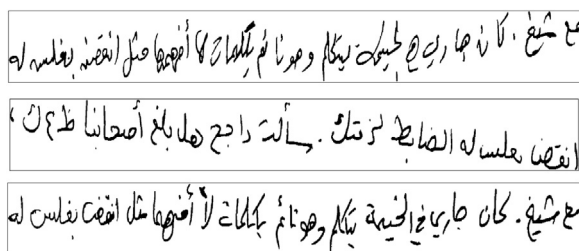 مع شيخ. كان جاري في الخيمة يتكلم وهو نائم بكلمات لا أفهمها مثل انقضت بفلس له
انقضت بفلس له الضابط لزقتك. سألت راجح هل بلغ أصحابنا ظ ع ك،
مع شيخ. كان جاري في الخيمة يتكلم وهو نائم بكلمات لا أفهمها مثل انقضت بفلس له